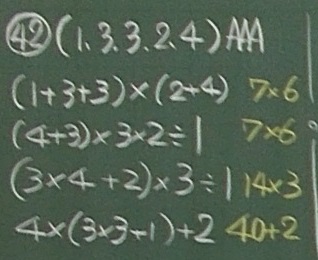 ㊷(1.3.3.2.4)AAA
(1+3+3)×(2+4) 7×6
(4+3)×3×2÷1 7×6
(3×4+2)×3÷1 14×3
4×(3×3+1)+2 40+2